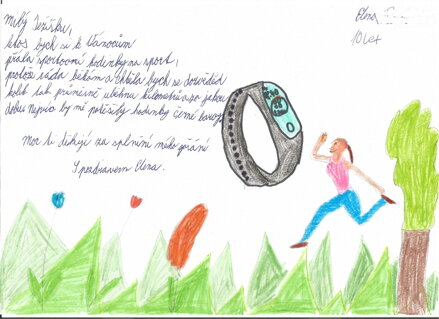 Milý Ježíšku,
letos bych si k Vánocům
přála sportovní hodinky na sport,
protože ráda běhám a chtěla bych se dozvědět
kolik tak průměrně uběhnu kilometrů a za jakou
dobu nejvíc by mě potěšily hodinky černé barvy
Moc ti děkuji za splnění mého přání
S pozdravem Elena.
Elena
10 let